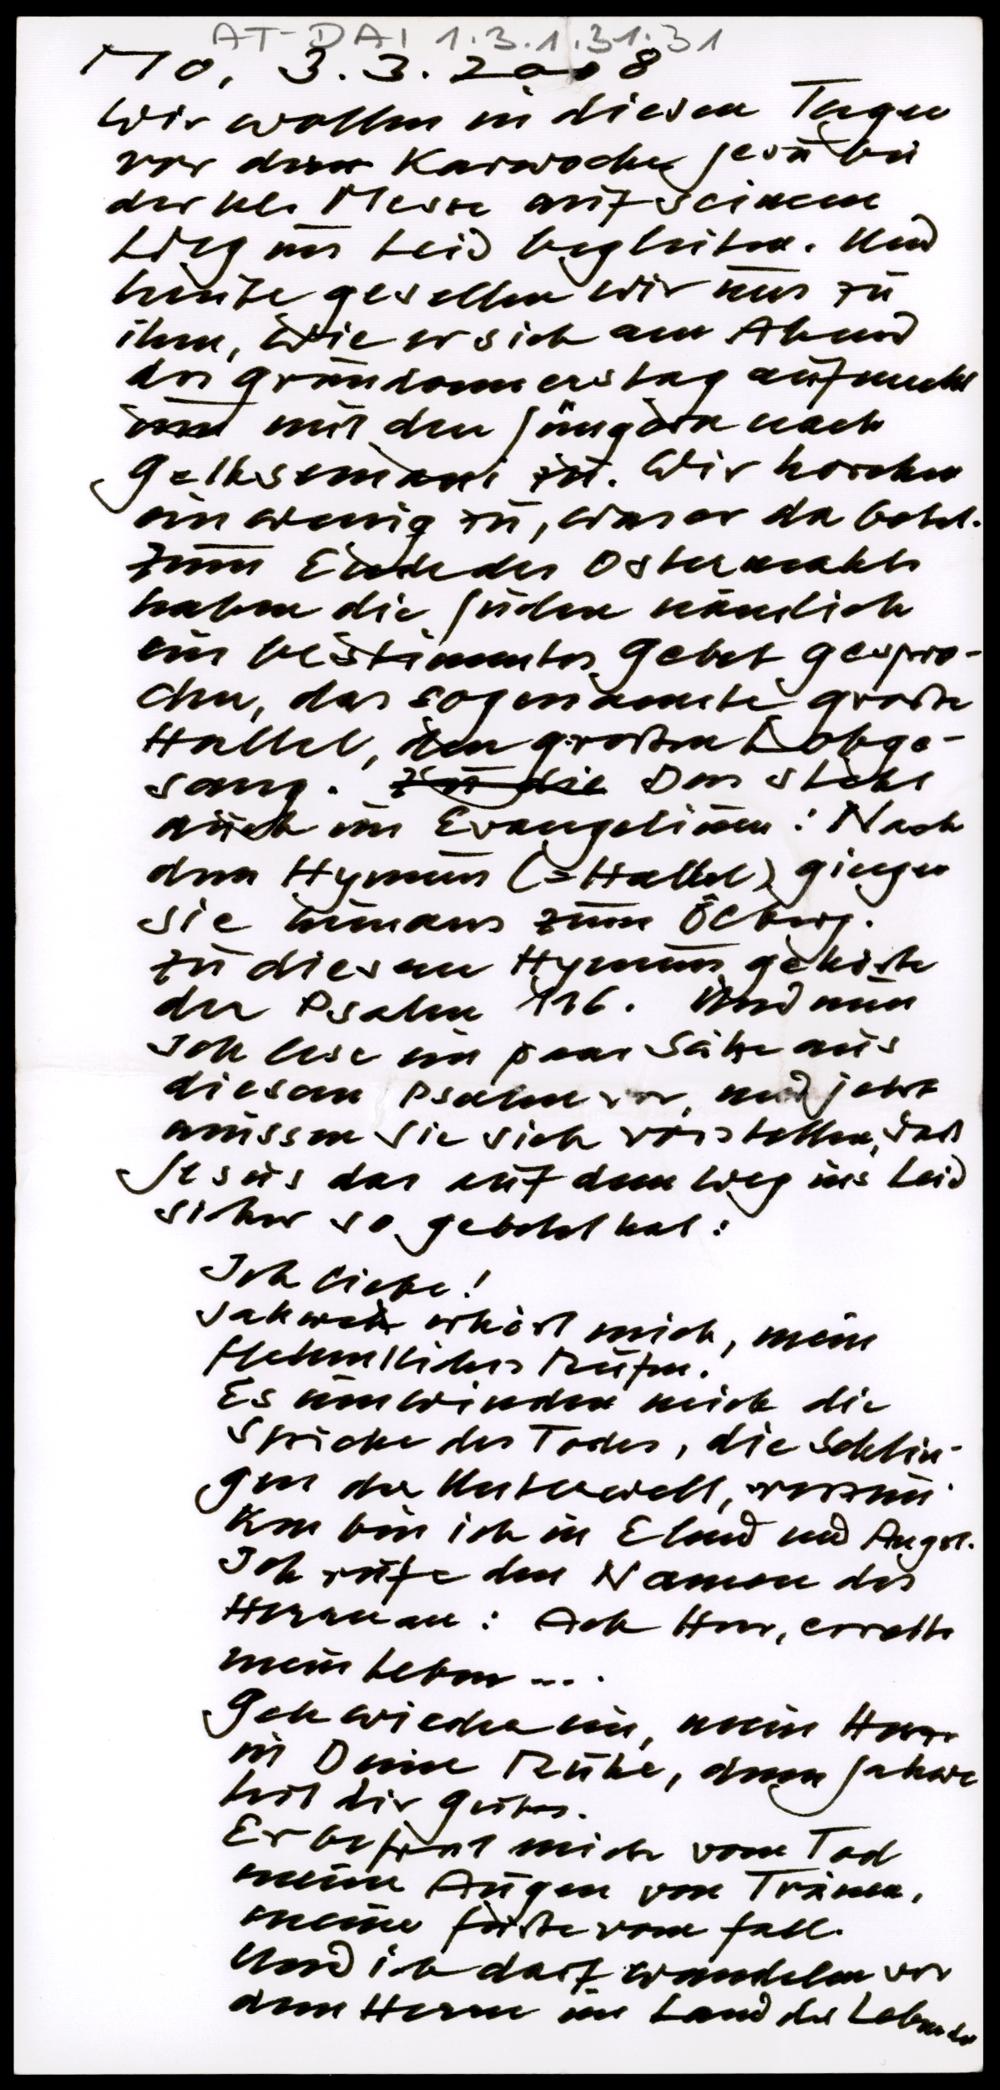 AT-DAI 1.3.1.31.31
Mo, 3.3.2008
Wir wollen in diesen Tagen
vor der Karwoche Jesu bei
der hl. Messe auf seinem
Weg ins Leid begleiten. Und
heute gesellen wir uns zu
ihm, wie er sich am Abend
des Gründonnerstag aufmacht
um mit den Jüngern nach
Gethsemani zu. Wir horchen
ein wenig zu, was er da betet.
Zum Ende des Ostermahls
haben die Juden nämlich
ein bestimmtes Gebet gespro-
chen, das sogenannte große
Hallel, den großen Lobge-
sang. Zu die Das steht
auch im Evangelium: Nach
dem Hymnus (=Hallel) gingen
sie hinaus zum Ölberg.
Zu diesem Hymnus gehörte
der Psalm 116. Und nun
Ich lese ein paar Sätze aus
diesem Psalm vor, und jetzt
müssen Sie sich vorstellen, daß
Jesus das auf dem Weg ins Leid
sicher so gebetet hat:
Ich liebe!
Jahweh erhört mich, mein
flehentliches Rufen.
Es umwinden mich die
Stricke des Todes, die Schlin-
gen der Unterwelt, versun-
ken bin ich in Elend und Angst.
Ich rufe den Namen des
Herrn an: Ach Herr, errette
mein Leben ....
Geh wieder ein, mein Herz
in Deine Ruhe, denn Jahwe
hat dir Gutes.
Er befreit mich vom Tod
meine Augen von Tränen,
meine Füße vom Fall.
Und ich darf wandeln vor
dem Herrn im Land des Lebens